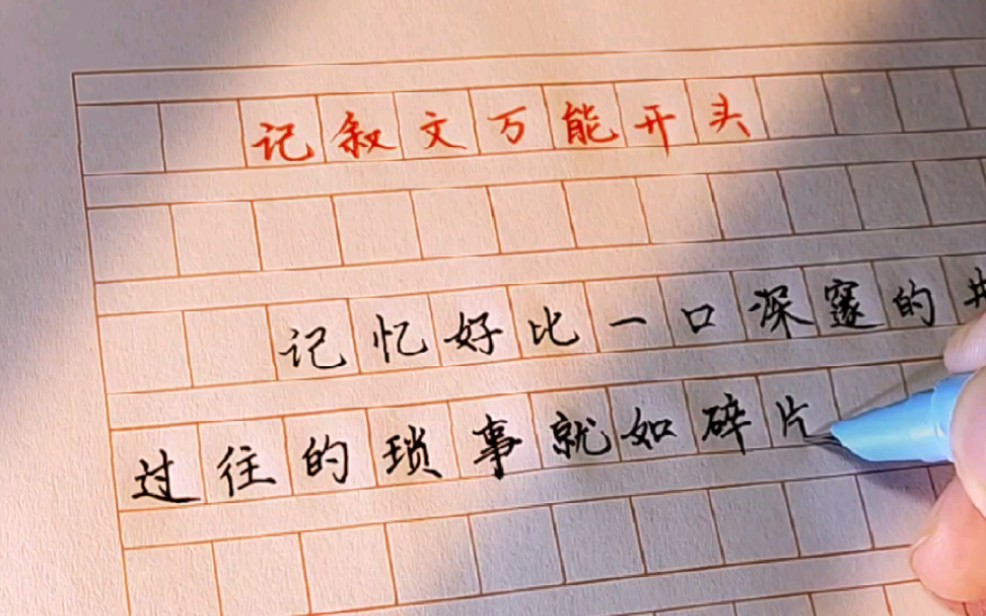 记叙文万能开头
记忆好比一口深邃的
过往的琐事就如碎片